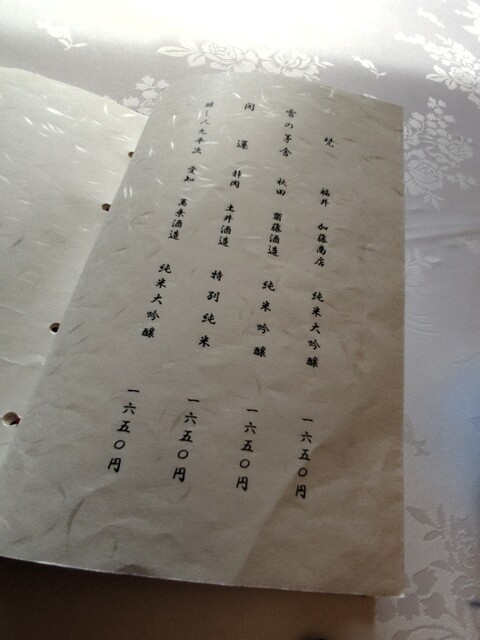 梵　福井　加藤商店　純米大吟醸　一六五〇円
雪の茅舎　秋田　齋藤酒造　純米吟醸　一六五〇円
開運　静岡　土井酒造　特別純米　一六五〇円
醸し人九平次　愛知　萬乗酒造　純米大吟醸　一六五〇円